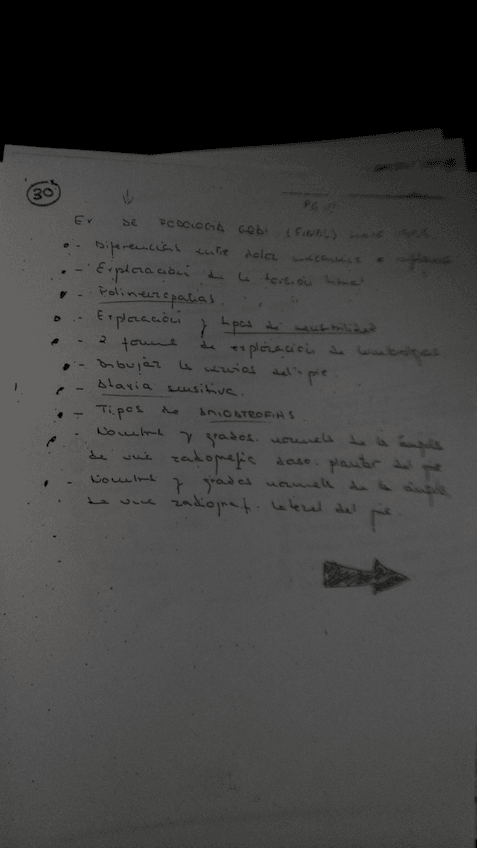 30
Ex DE PODOLOGIA GRAL (FINAL)
- Diferencias entre dolor mecanico e inflamat
- Exploración de la torsión tibial
- Polineuropatias.
- Exploración y tipos de sensibilidad
- 2 formas de exploración de lumbalgias
- Dibujar los nervios del pie.
- Ataxia sensitiva.
- Tipos de AMIOTROFIAS.
- Nombre y grados normales de los ángulos
de una radiografia dorso plantar del pie
- Nombre y grados normales de los ángulos
de una radiograf. lateral del pie.